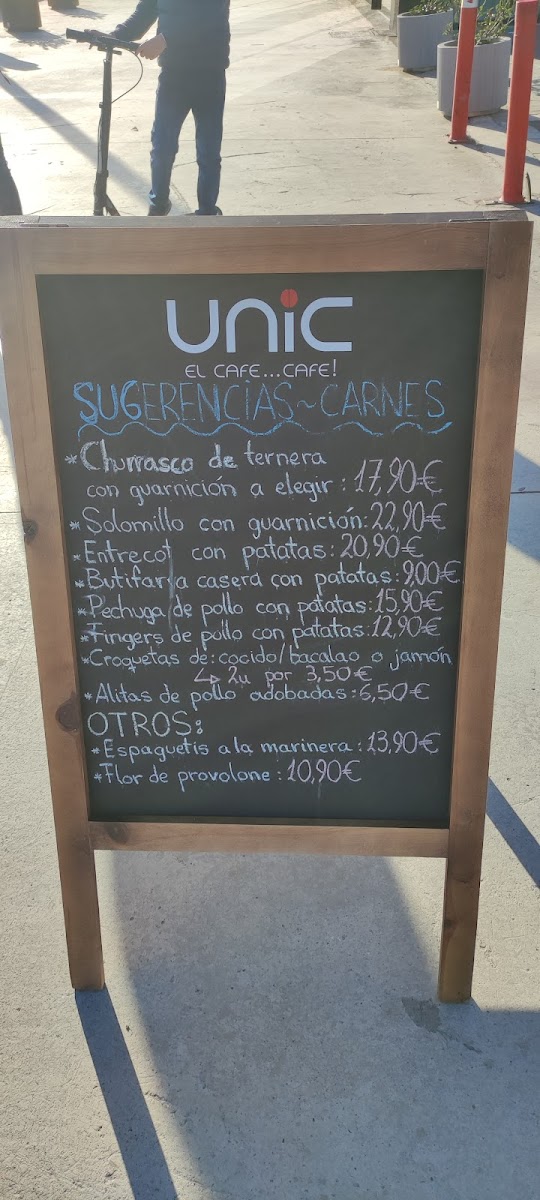 UNiC
EL CAFE...CAFE!
SUGERENCIAS ~ CARNES
*Churrasco de ternera
con guarnición a elegir: 17,90€
*Solomillo con guarnición: 22,90€
*Entrecot con patatas: 20,90€
*Butifarra casera con patatas: 9,00€
*Pechuga de pollo con patatas: 15,90€
*Fingers de pollo con patatas: 12,90€
*Croquetas de: cocido/bacalao o jamón
↳ 2u por 3,50€
*Alitas de pollo adobadas: 6,50€
OTROS:
*Espaguetis a la marinera: 13,90€
*Flor de provolone: 10,90€